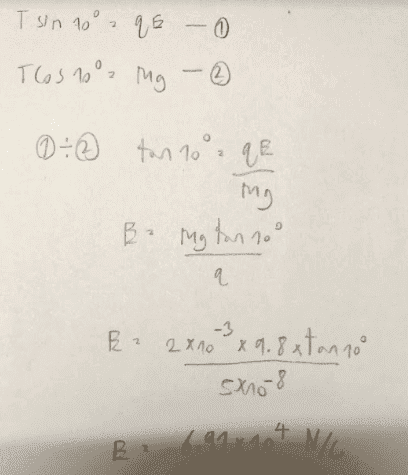 T sin 10° = qE — ①
T cos 10° = Mg — ②
①÷② tan 10° = qE
mg
E = Mg tan 10°
q
E = 2×10⁻³ × 9.8 × tan 10°
5×10⁻⁸
E = 6.91×10⁴ N/C